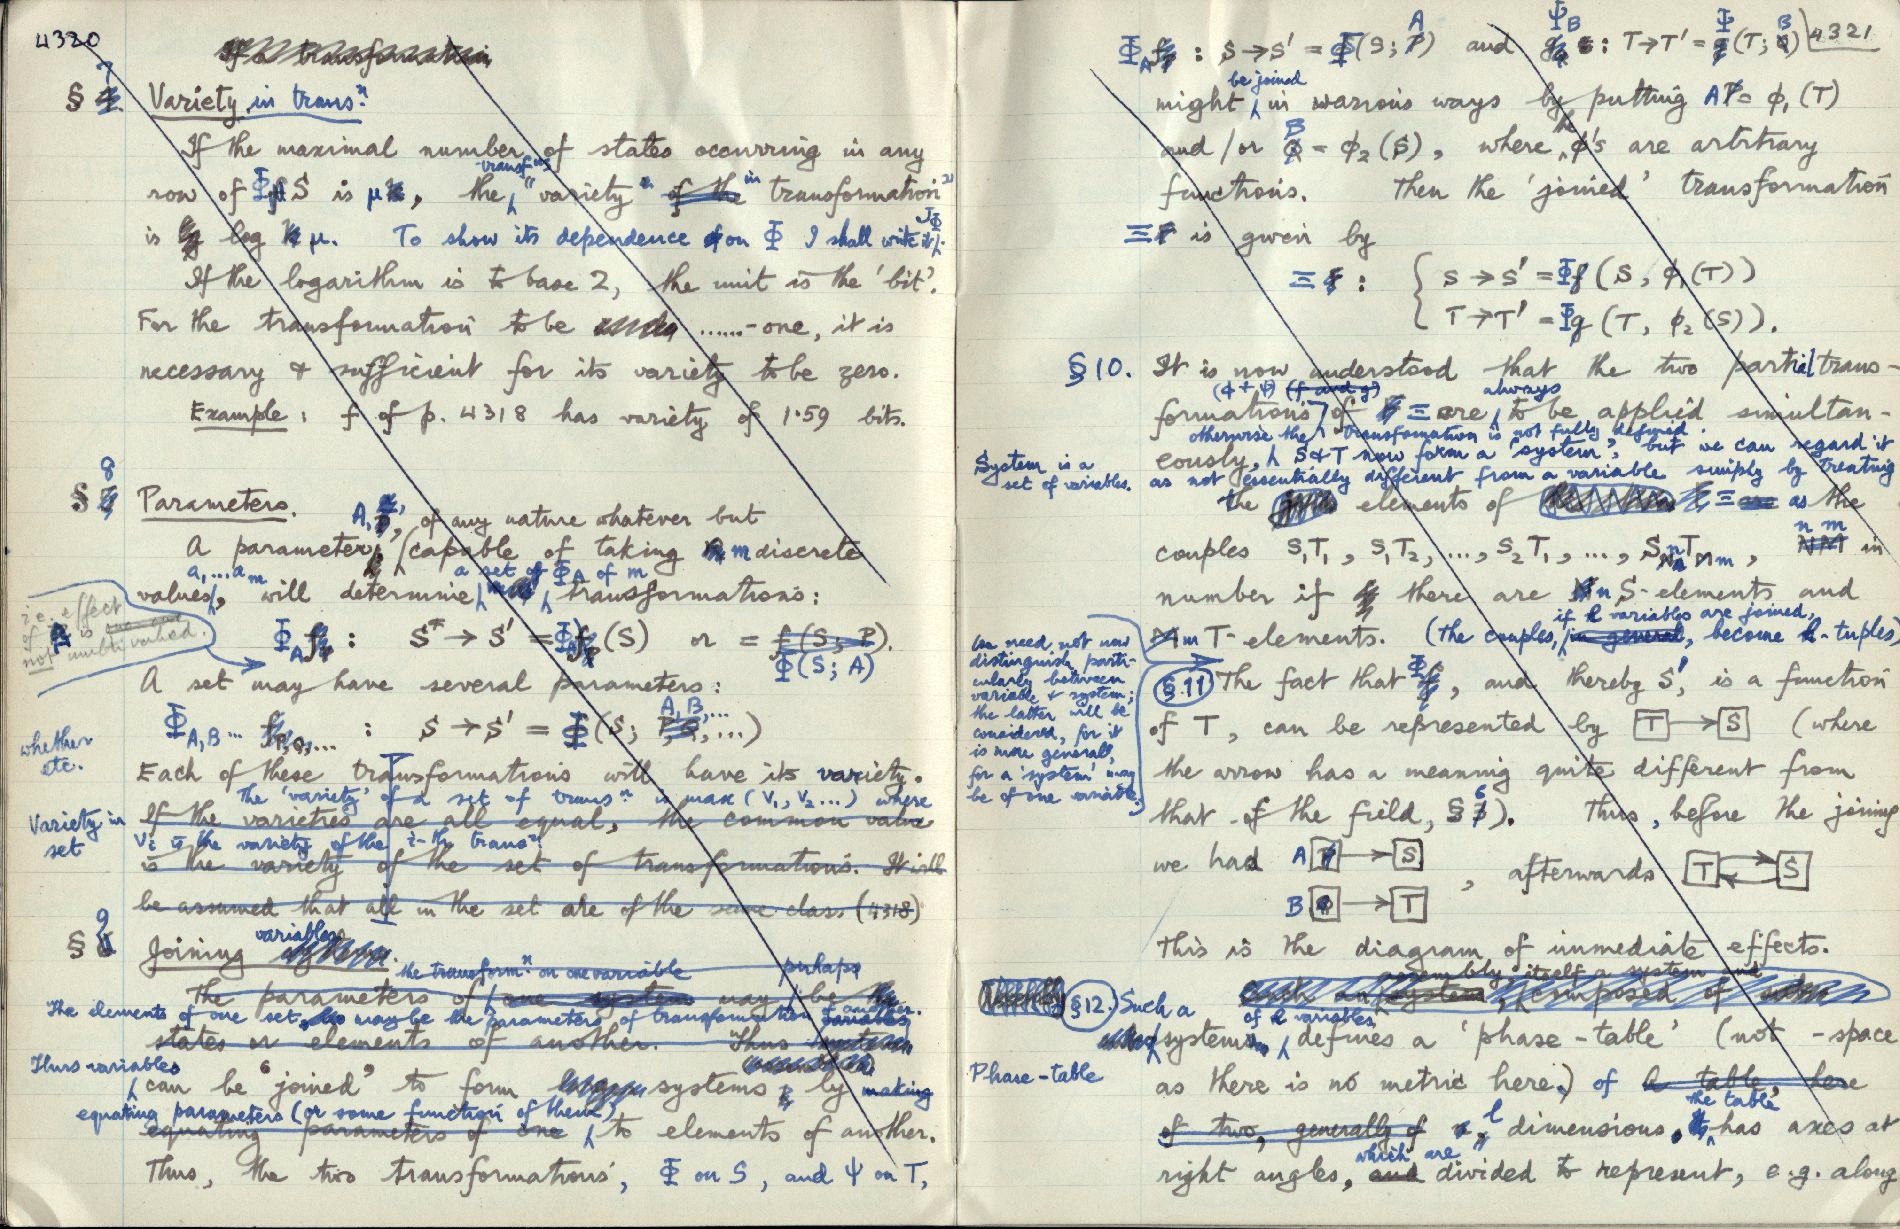 4320
If a transformation
§ 7 Variety in transⁿ.
If the maximal number of states occurring in any
row of Φ_A S is μ, the transfⁿ's "variety" of the in transformation"
is log μ. To show its dependence on Φ I shall write it J_Φ.
If the logarithm is to base 2, the unit is the 'bit'.
For the transformation to be ......-one, it is
necessary & sufficient for its variety to be zero.
Example: f of p. 4318 has variety of 1·59 bits.
§ 8 Parameters.
A parameter, A, of any nature whatever but
capable of taking m discrete
values, a₁,...a_m will determine a set of Φ_A of m transformations:
i.e. effect
of A is
not multivalued.
Φ_A : S → S' = Φ_A (S) or = f(S; P).
Φ(S; A)
A set may have several parameters:
Φ_A,B... : S → S' = Φ(S; A,B,...)
whether
etc.
Each of these transformations will have its variety.
The 'variety' of a set of transⁿ is max (V₁, V₂ ...) where
If the varieties are all equal, the common value
Variety in
set
Vᵢ is the variety of the i-th transⁿ
is the variety of the set of transformations. It will
be assumed that all in the set are of the same class (4318)
§ 9 Joining variables.
the transformⁿ on one variable perhaps
The parameters of one system may be
The elements of one set may be the parameters of transformation of another.
variables
states or elements of another. Thus
Thus variables
can be "joined" to form systems by making
equating parameters (or some function of them)
equating parameters of one to elements of another.
Thus, the two transformations, Φ on S, and Ψ on T,
4321
Φ_A : S → S' = Φ(S; A) and Ψ_B : T → T' = Ψ(T; B)
might be joined in various ways by putting A = φ₁(T)
and/or B = φ₂(S), where the φ's are arbitrary
functions. Then the 'joined' transformation
Ξ is given by
Ξ : { S → S' = Φ(S, φ₁(T))
T → T' = Ψ(T, φ₂(S)).
§10. It is now understood that the two partial trans-
(Φ + Ψ) (f and g) always
formations of Ξ are to be applied simultan-
otherwise the transformation is not fully defined.
eously, S & T now form a 'system', but we can regard it
System is a
set of variables.
as not essentially different from a variable simply by treating
the elements of Ξ as the
couples S₁T₁, S₁T₂, ..., S₂T₁, ..., SₙTₘ, n m in
number if there are n S-elements and
m T-elements. (The couples, if l variables are joined, in general, become l-tuples)
We need not now
distinguish parti-
cularly between
variable & system;
the latter will be
considered, for it
is more general,
for a 'system' may
be of one variable.
§11 The fact that Φ, and thereby S', is a function
of T, can be represented by T → S (where
the arrow has a meaning quite different from
that of the field, § 6). Thus, before the joining
we had A P → S
B → T
, afterwards T S
This is the diagram of immediate effects.
assembly itself a system and
such an system, composed of
§12. Such a
system of l variables defines a 'phase-table' (not -space
Phase-table
as there is no metric here.) of a table, here
of two, generally of l dimensions. the table has axes at
right angles, which are and divided to represent, e.g. along